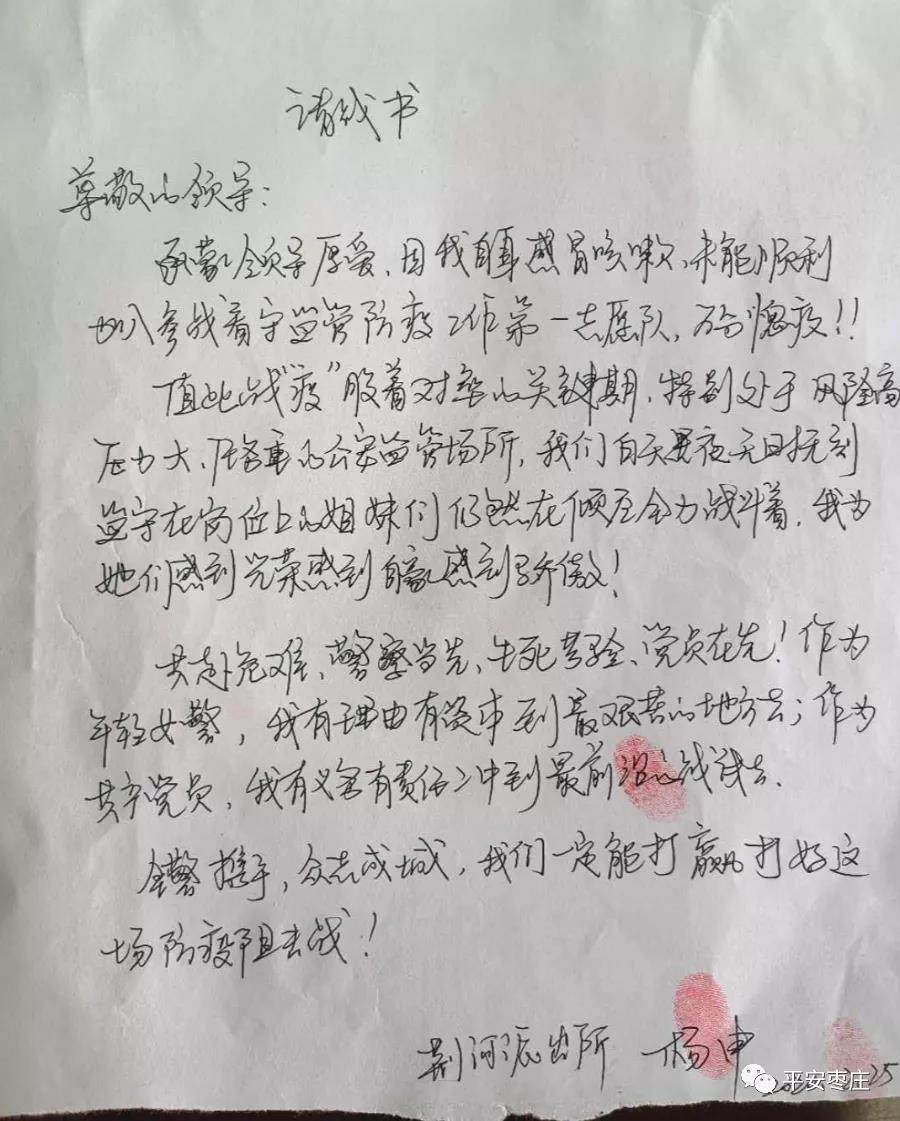 请战书
尊敬的领导:
承蒙领导厚爱,因我自身感冒咳嗽、未能顺利
加入参战看守监管防疫工作第一志愿队,万分愧疚!!
值此战"疫"胶着对垒的关键期,特别处于风险高
压力大、任务重的公安监管场所,我们白天黑夜无时无刻
坚守在岗位上的姐妹们仍然在倾尽全力战斗着,我为
她们感到光荣感到自豪感到骄傲!
共赴危难、警察当先、生死考验、党员在先!作为
年轻女警,我有理由有资本到最艰苦的地方去;作为
共产党员,我有义务有责任冲到最前沿的战线去.
全警携手,众志成城,我们一定能打赢打好这
场防疫阻击战!
荆河派出所 杨申
25
平安枣庄